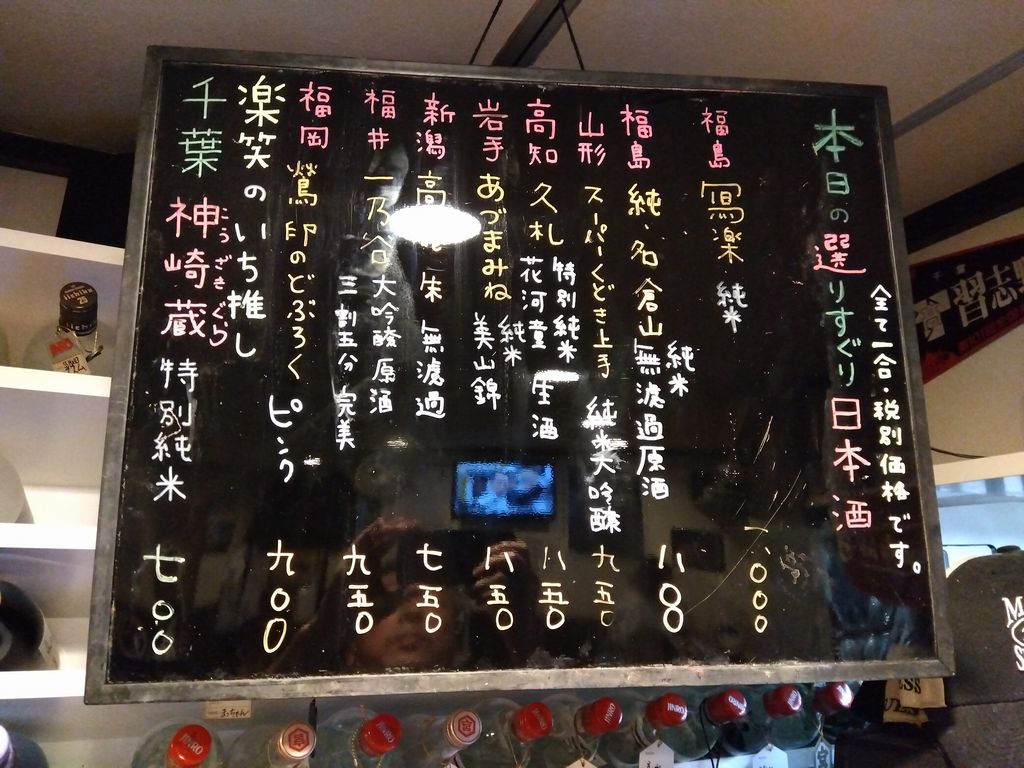 本日の選りすぐり日本酒
全て一合・税別価格です。
福島 冩楽 純米 一、〇〇〇
福島 純・名倉山 純米 無濾過原酒 八〇〇
山形 スーパーくどき上手 純米大吟醸 九五〇
高知 久礼 特別純米 花河童 生酒 八五〇
岩手 あづまみね 純米 美山錦 八五〇
新潟 高 朱 無濾過 七五〇
福井 一乃谷 大吟醸原酒 三割五分 完美 九五〇
福岡 鶯印のどぶろく ピンク 九〇〇
楽笑のいち推し
千葉 神崎蔵 特別純米 七〇〇
こうざきぐら
習志野
iichiko
25
JINRO
JINRO
JINRO
JINRO
JINRO
JINRO
宮